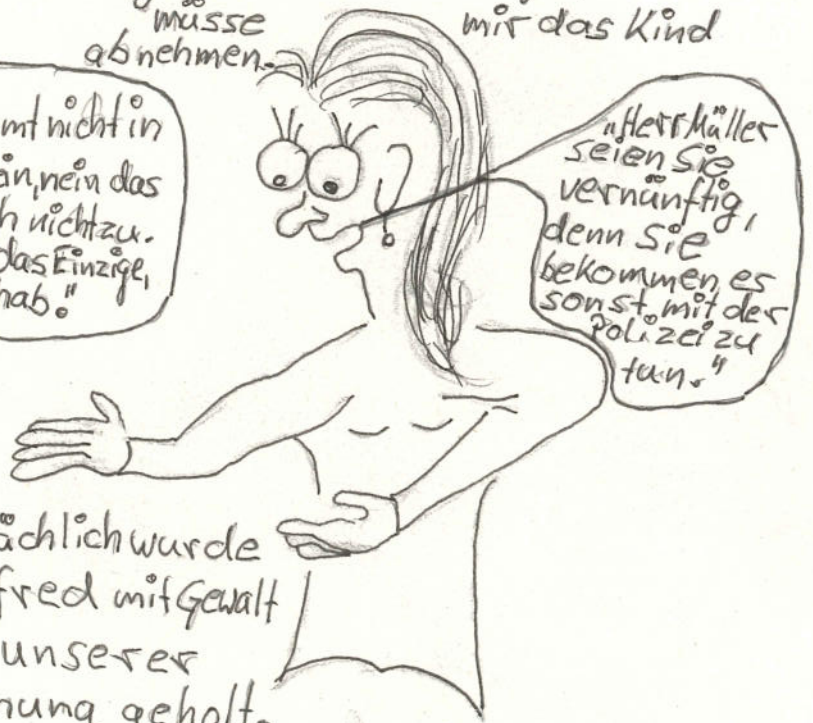 müsse
abnehmen.
mir das Kind
mt nicht in
än, nein das
h nicht zu.
das Einzige,
hab."
„Herr Müller
seien Sie
vernünftig,
denn Sie
bekommen es
sonst mit der
Polizei zu
tun."
ächlich wurde
fred mit Gewalt
unserer
nung geholt.